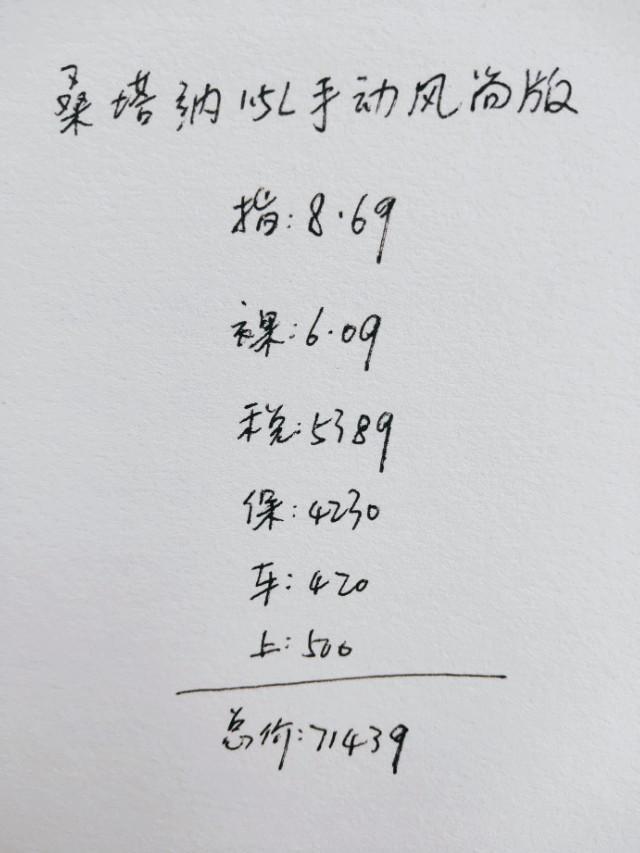 桑塔纳1.5L手动风尚版
指:8.69
裸:6.09
税:5389
保:4230
车:420
上:500
总价:71439